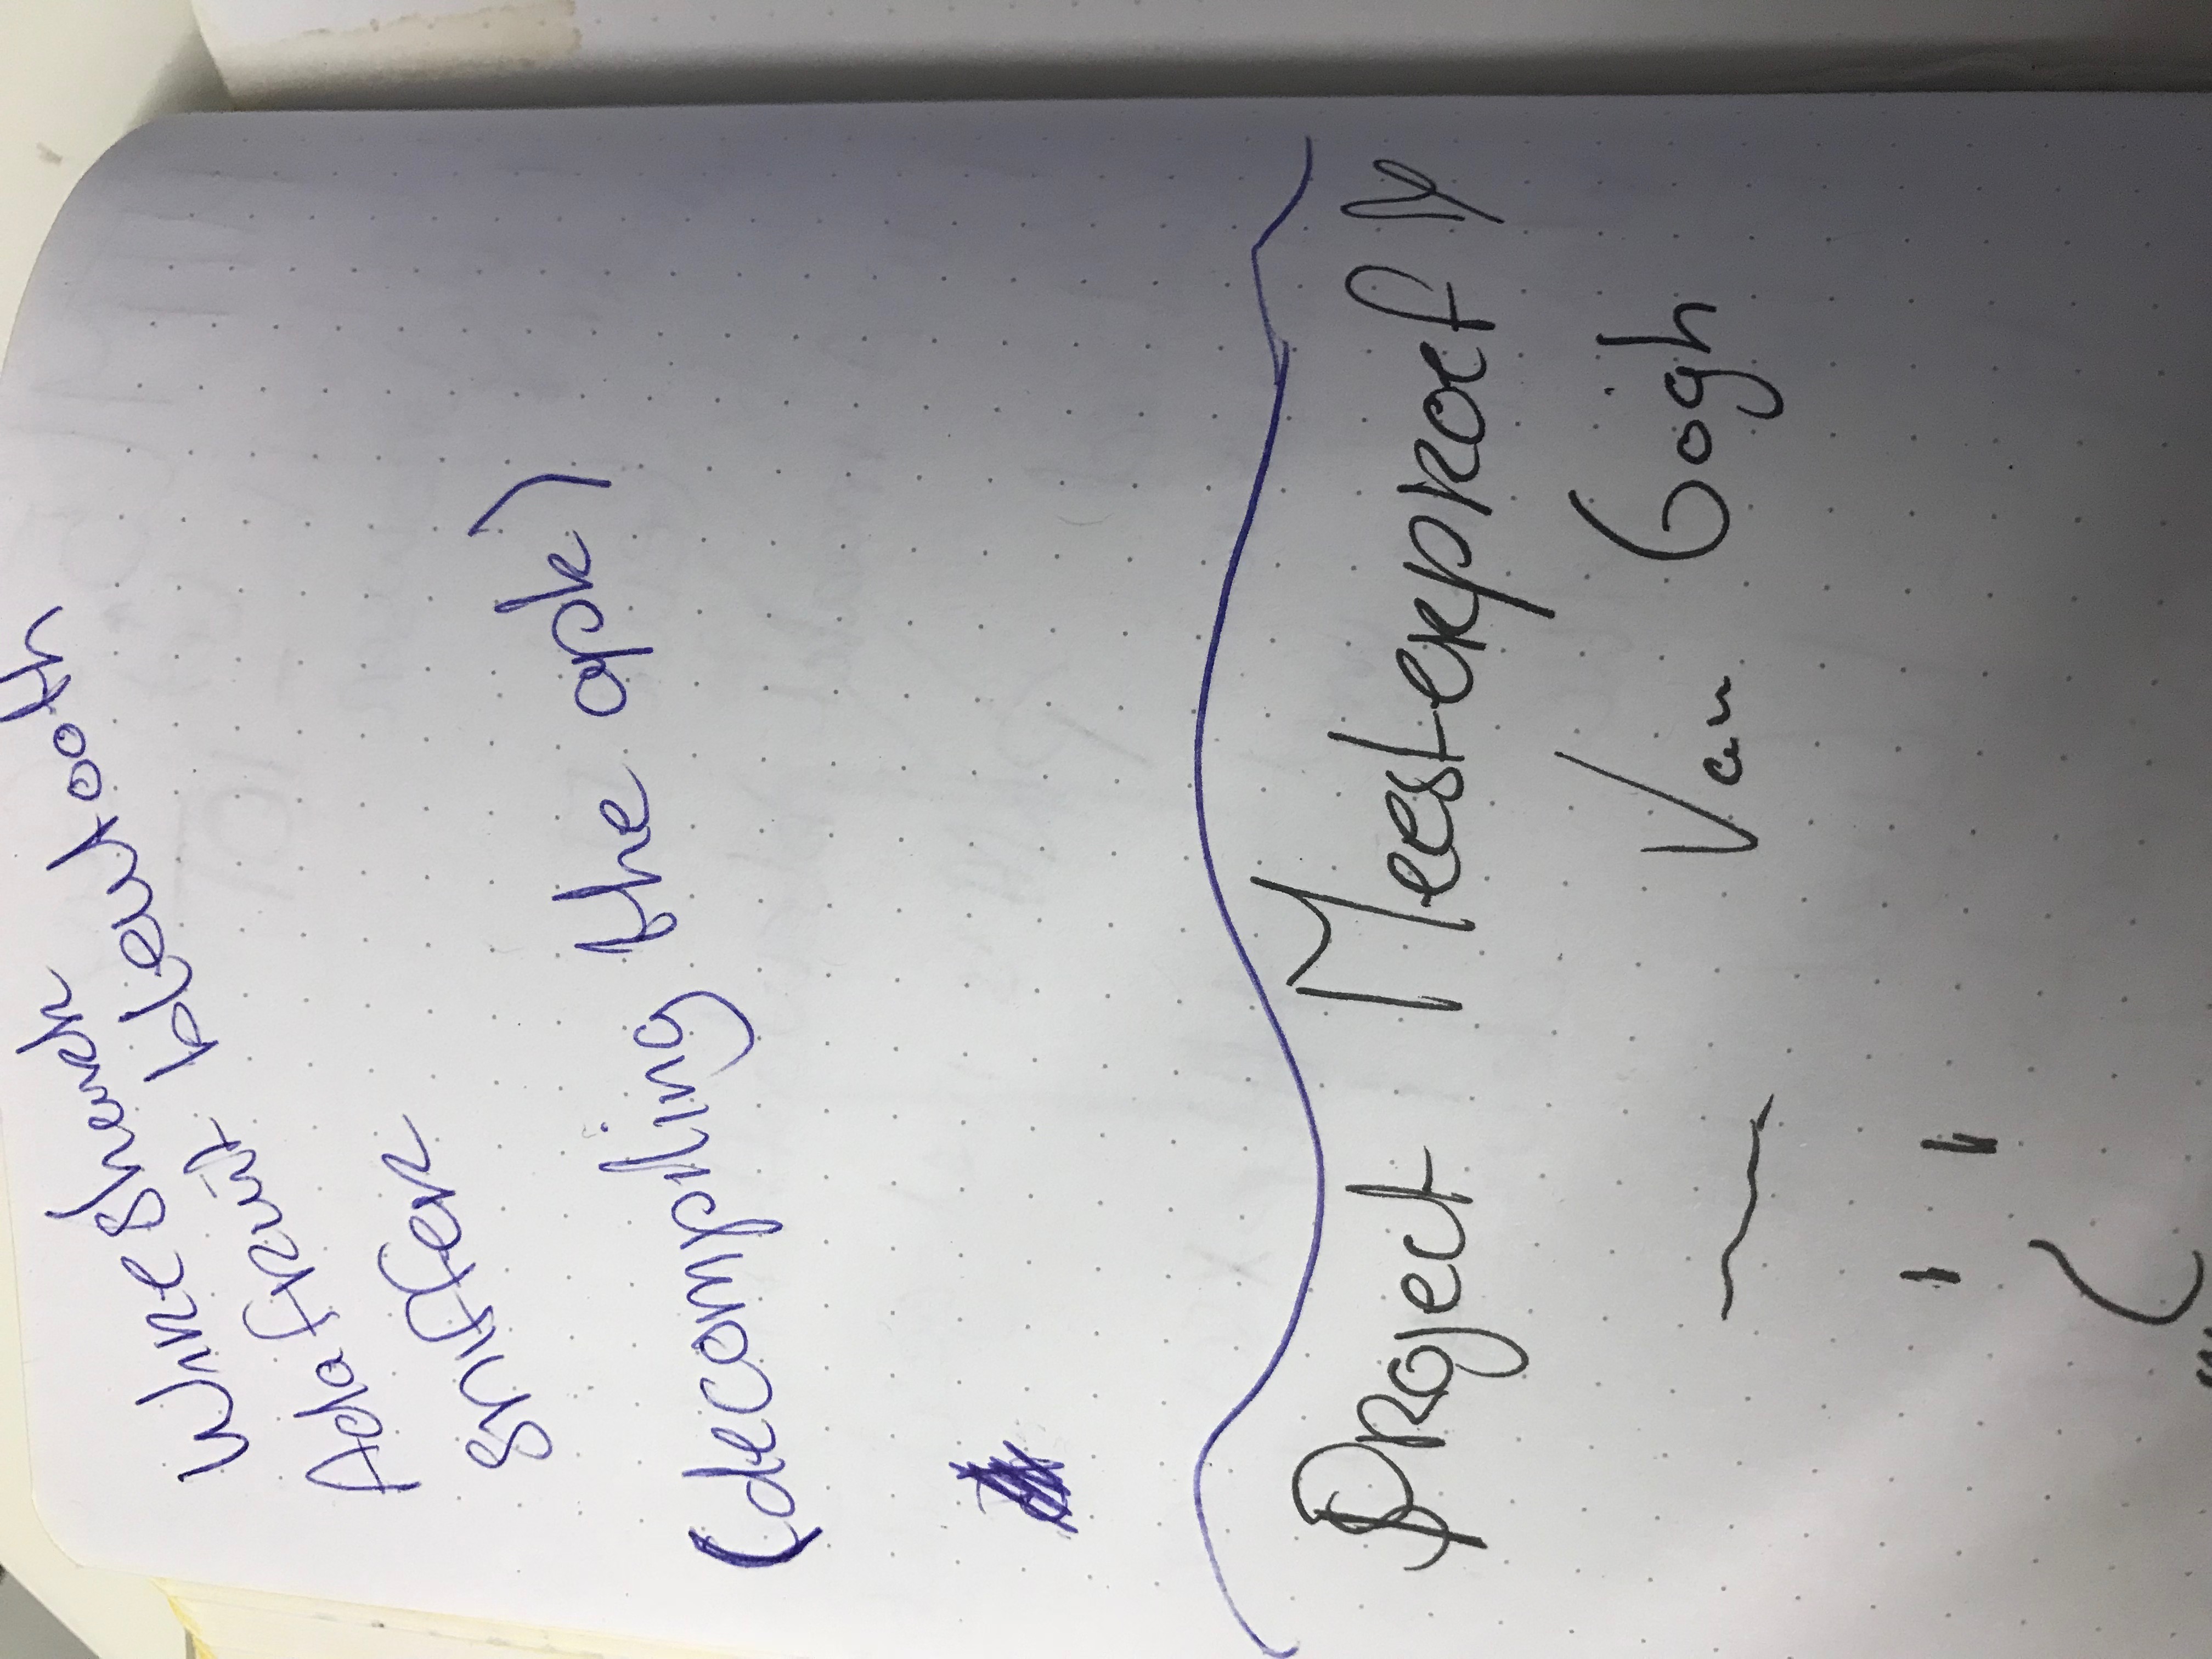 Wireshark
Adafruit bleutooth
sniffer
(decompiling the apk)
Project Meesterproef
Van Gogh